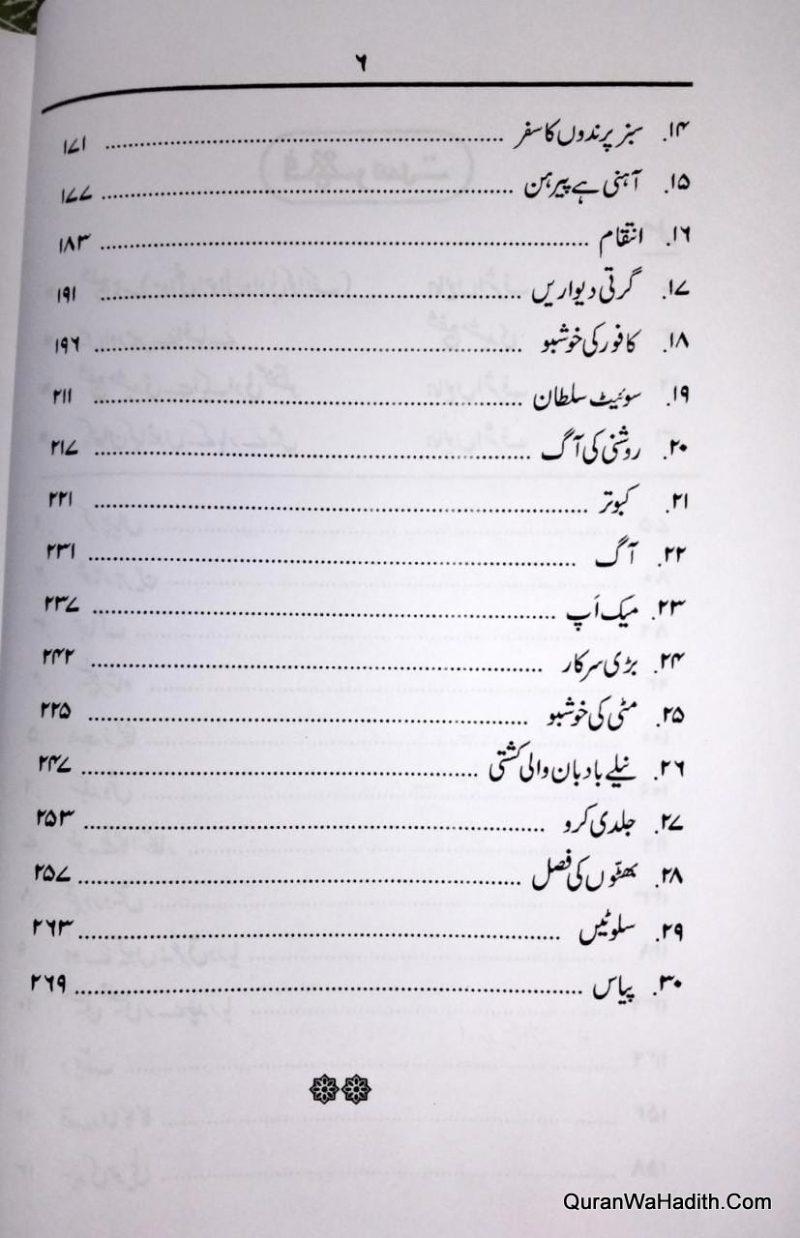 ۶
۱۴. سبز پرندوں کا سفر ۱۷۱
۱۵. آہنی ہے پیرہن ۱۷۷
۱۶. انتقام ۱۸۳
۱۷. گرتی دیواریں ۱۹۱
۱۸. کافور کی خوشبو ۱۹۶
۱۹. سوئیٹ سلطان ۲۱۱
۲۰. روشنی کی آگ ۲۱۷
۲۱. کبوتر ۲۲۱
۲۲. آگ ۲۳۱
۲۳. میک اَپ ۲۳۷
۲۴. بڑی سرکار ۲۴۲
۲۵. مٹی کی خوشبو ۲۲۵
۲۶. نیلے بادبان والی کشتی ۲۴۷
۲۷. جلدی کرو ۲۵۳
۲۸. بھٹوں کی فصل ۲۵۷
۲۹. سلوٹیں ۲۶۳
۳۰. پیاس ۲۶۹
QuranWaHadith.Com